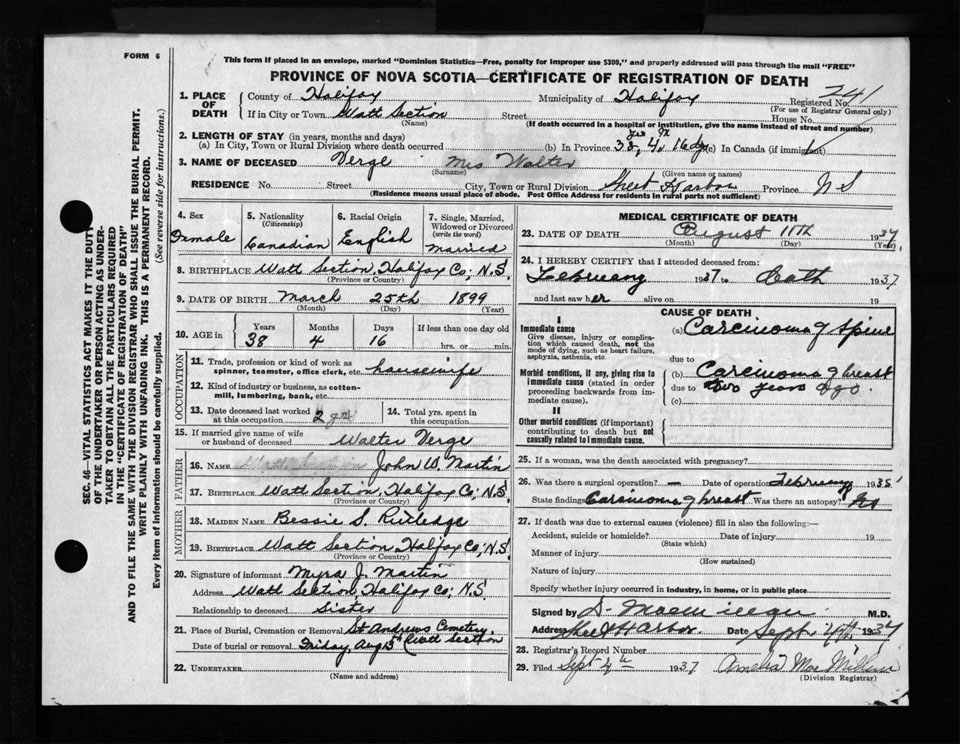 FORM 6
This form if placed in an envelope, marked "Dominion Statistics—Free, penalty for improper use $300," and properly addressed will pass through the mail "FREE"
PROVINCE OF NOVA SCOTIA—CERTIFICATE OF REGISTRATION OF DEATH
SEC. 46—VITAL STATISTICS ACT MAKES IT THE DUTY
OF THE UNDERTAKER OR PERSON ACTING AS UNDER-
TAKER TO OBTAIN ALL THE PARTICULARS REQUIRED
IN THE "CERTIFICATE OF REGISTRATION OF DEATH"
AND TO FILE THE SAME WITH THE DIVISION REGISTRAR WHO SHALL ISSUE THE BURIAL PERMIT.
WRITE PLAINLY WITH UNFADING INK. THIS IS A PERMANENT RECORD.
Every item of information should be carefully supplied. (See reverse side for instructions.)
1. PLACE OF DEATH County of Halifax Municipality of Halifax Registered No. 241
(For use of Registrar General only)
If in City or Town Watt Section Street House No.
(Name) (If death occurred in a hospital or institution, give the name instead of street and number)
2. LENGTH OF STAY (in years, months and days)
(a) In City, Town or Rural Division where death occurred (b) In Province 38, 4, 16 dys (c) In Canada (if immigrant)
3. NAME OF DECEASED Verge Mrs Walter
(Surname) (Given name or names)
RESIDENCE No. Street City, Town or Rural Division Sheet Harbor Province N S
(Residence means usual place of abode. Post Office Address for residents in rural parts not sufficient)
4. Sex Female
5. Nationality (Citizenship) Canadian
6. Racial Origin English
7. Single, Married, Widowed or Divorced (write the word) Married
8. BIRTHPLACE Watt Section, Halifax Co; N.S.
(Province or Country)
9. DATE OF BIRTH March 25th 1899
(Month) (Day) (Year)
10. AGE in Years 38 Months 4 Days 16 If less than one day old hrs. or min.
OCCUPATION
11. Trade, profession or kind of work as spinner, teamster, office clerk, etc. housewife
12. Kind of industry or business, as cotton-mill, lumbering, bank, etc.
13. Date deceased last worked at this occupation 2 yrs
14. Total yrs. spent in this occupation
15. If married give name of wife or husband of deceased Walter Verge
FATHER
16. NAME John W. Martin
17. BIRTHPLACE Watt Section, Halifax Co; N.S.
(Province or Country)
MOTHER
18. MAIDEN NAME Bessie S. Rutledge
19. BIRTHPLACE Watt Section, Halifax Co; N.S.
(Province or Country)
20. Signature of informant Myra J. Martin
Address Watt Section, Halifax Co; N.S.
Relationship to deceased Sister
21. Place of Burial, Cremation or Removal St Andrews Cemetery
Date of burial or removal Friday, Aug (Watt Section
22. UNDERTAKER
(Name and address)
MEDICAL CERTIFICATE OF DEATH
23. DATE OF DEATH August 11TH 1937
(Month) (Day) (Year)
24. I HEREBY CERTIFY that I attended deceased from:
1937 to 1937
and last saw her alive on 19
CAUSE OF DEATH
I
Immediate cause
Give disease, injury or complication which caused death, not the mode of dying, such as heart failure, asphyxia, asthenia, etc.
(a) Carcinoma of spine
due to
Morbid conditions, if any, giving rise to immediate cause (stated in order proceeding backwards from immediate cause).
(b) Carcinoma of breast
due to two years ago.
(c)
II
Other morbid conditions (if important) contributing to death but not causally related to immediate cause.
25. If a woman, was the death associated with pregnancy?
26. Was there a surgical operation? — Date of operation February 1935
State findings Carcinoma of breast Was there an autopsy? No
27. If death was due to external causes (violence) fill in also the following:—
Accident, suicide or homicide? Date of injury 19
(State which)
Manner of injury
(How sustained)
Nature of injury
Specify whether injury occurred in industry, in home, or in public place
Signed by M.D.
Address Sheet Harbor Date Sept. 1937
28. Registrar's Record Number
29. Filed Sept 4th 1937 Amelia MacMillan
(Division Registrar)